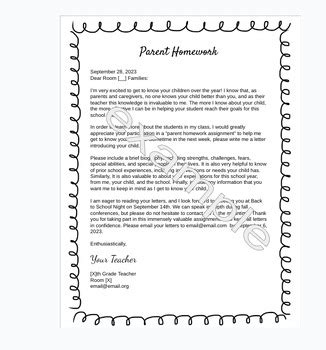 Parent Homework
September 28, 2023
Dear Room [__] Families:
I'm very excited to get to know your children over the year! I know that, as
parents and caregivers, no one knows your child better than you, and as their
teacher this knowledge is invaluable to me. The more I know about your child,
the more effective I can be in helping your student reach their goals for this
school
In order to learn more about the students in my class, I would greatly
appreciate your participation in a "parent homework assignment" to help me
get to know your child. Sometime in the next week, please write me a letter
introducing your child.
Please include a brief biography, including strengths, challenges, fears,
special abilities, and special people in their lives. It is also very helpful to know
of prior school experiences, including or needs your child has.
Similarly, It is also valuable to about your expectations for this school year,
from me, your child, and the school. Finally, any information that you
want me to keep in mind as I get to know your child.
I am eager to reading your letters, and I look forward to seeing you at Back
to School Night on September 14th. We can speak in depth during fall
conferences, but please do not hesitate to contact me at any time. Thank
you for taking part in this immensely valuable assignment. I keep all letters
in confidence. Please email your letters to email@email.com by September 6,
2023.
Enthusiastically,
Your Teacher
[X]th Grade Teacher
Room [X]
email@email.org
example